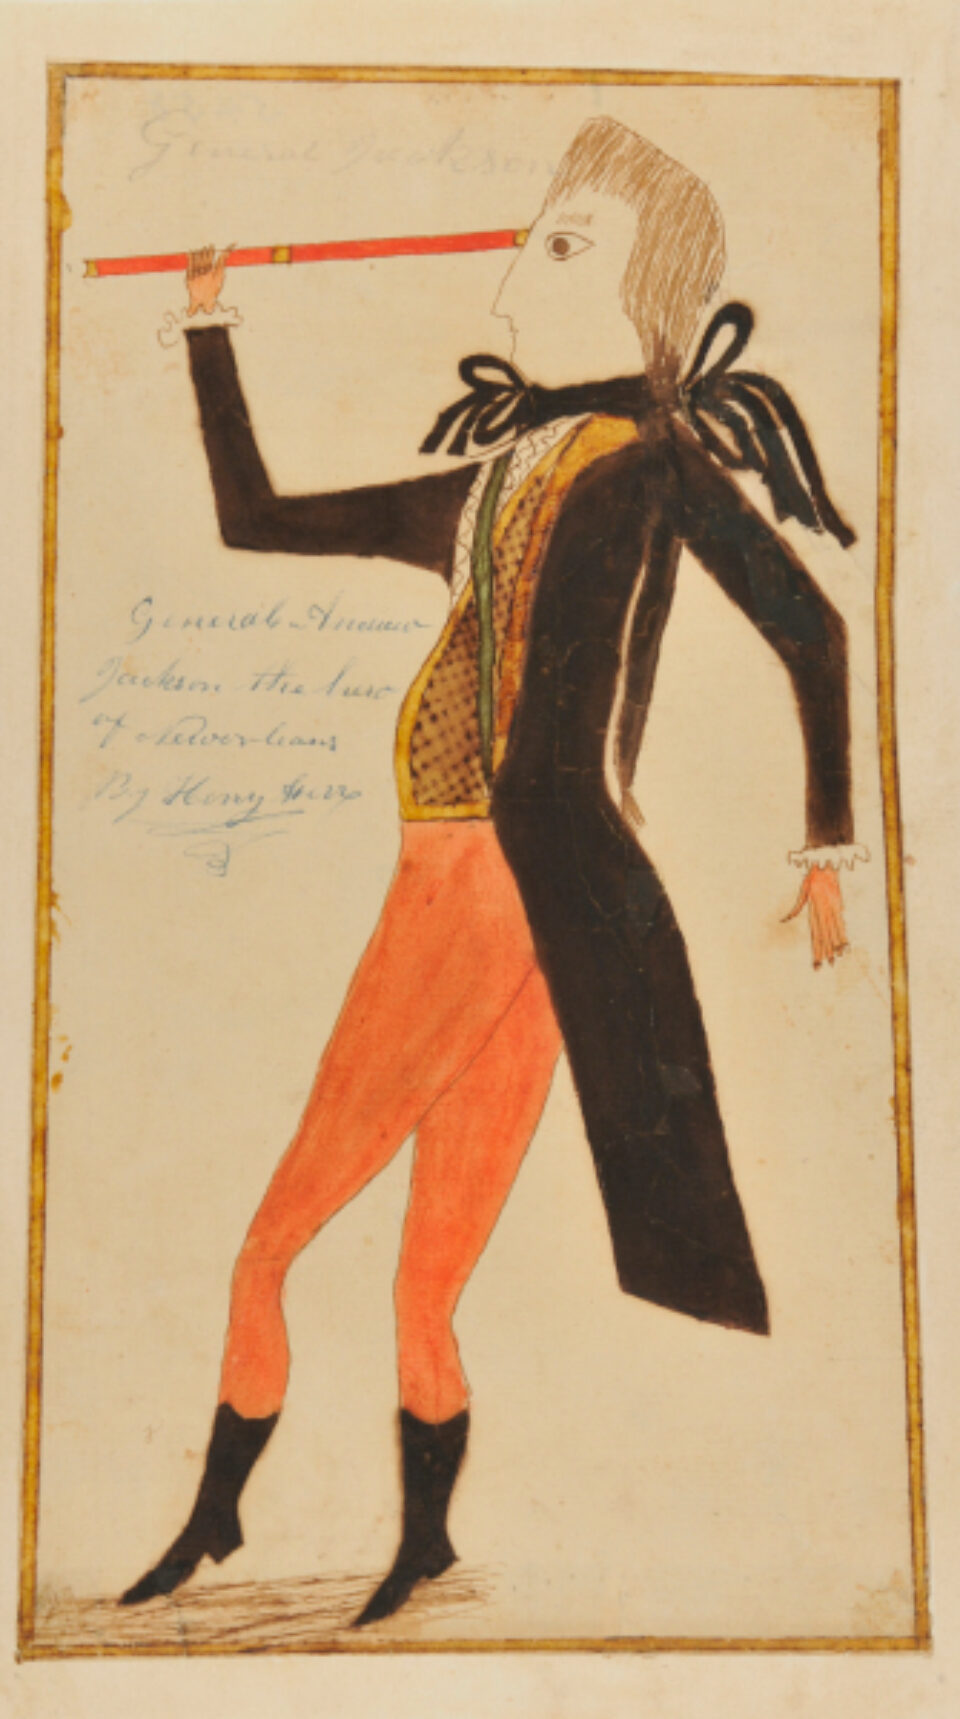 General Jackson
General Andrew
Jackson the hero
of Neworleans
By Henry